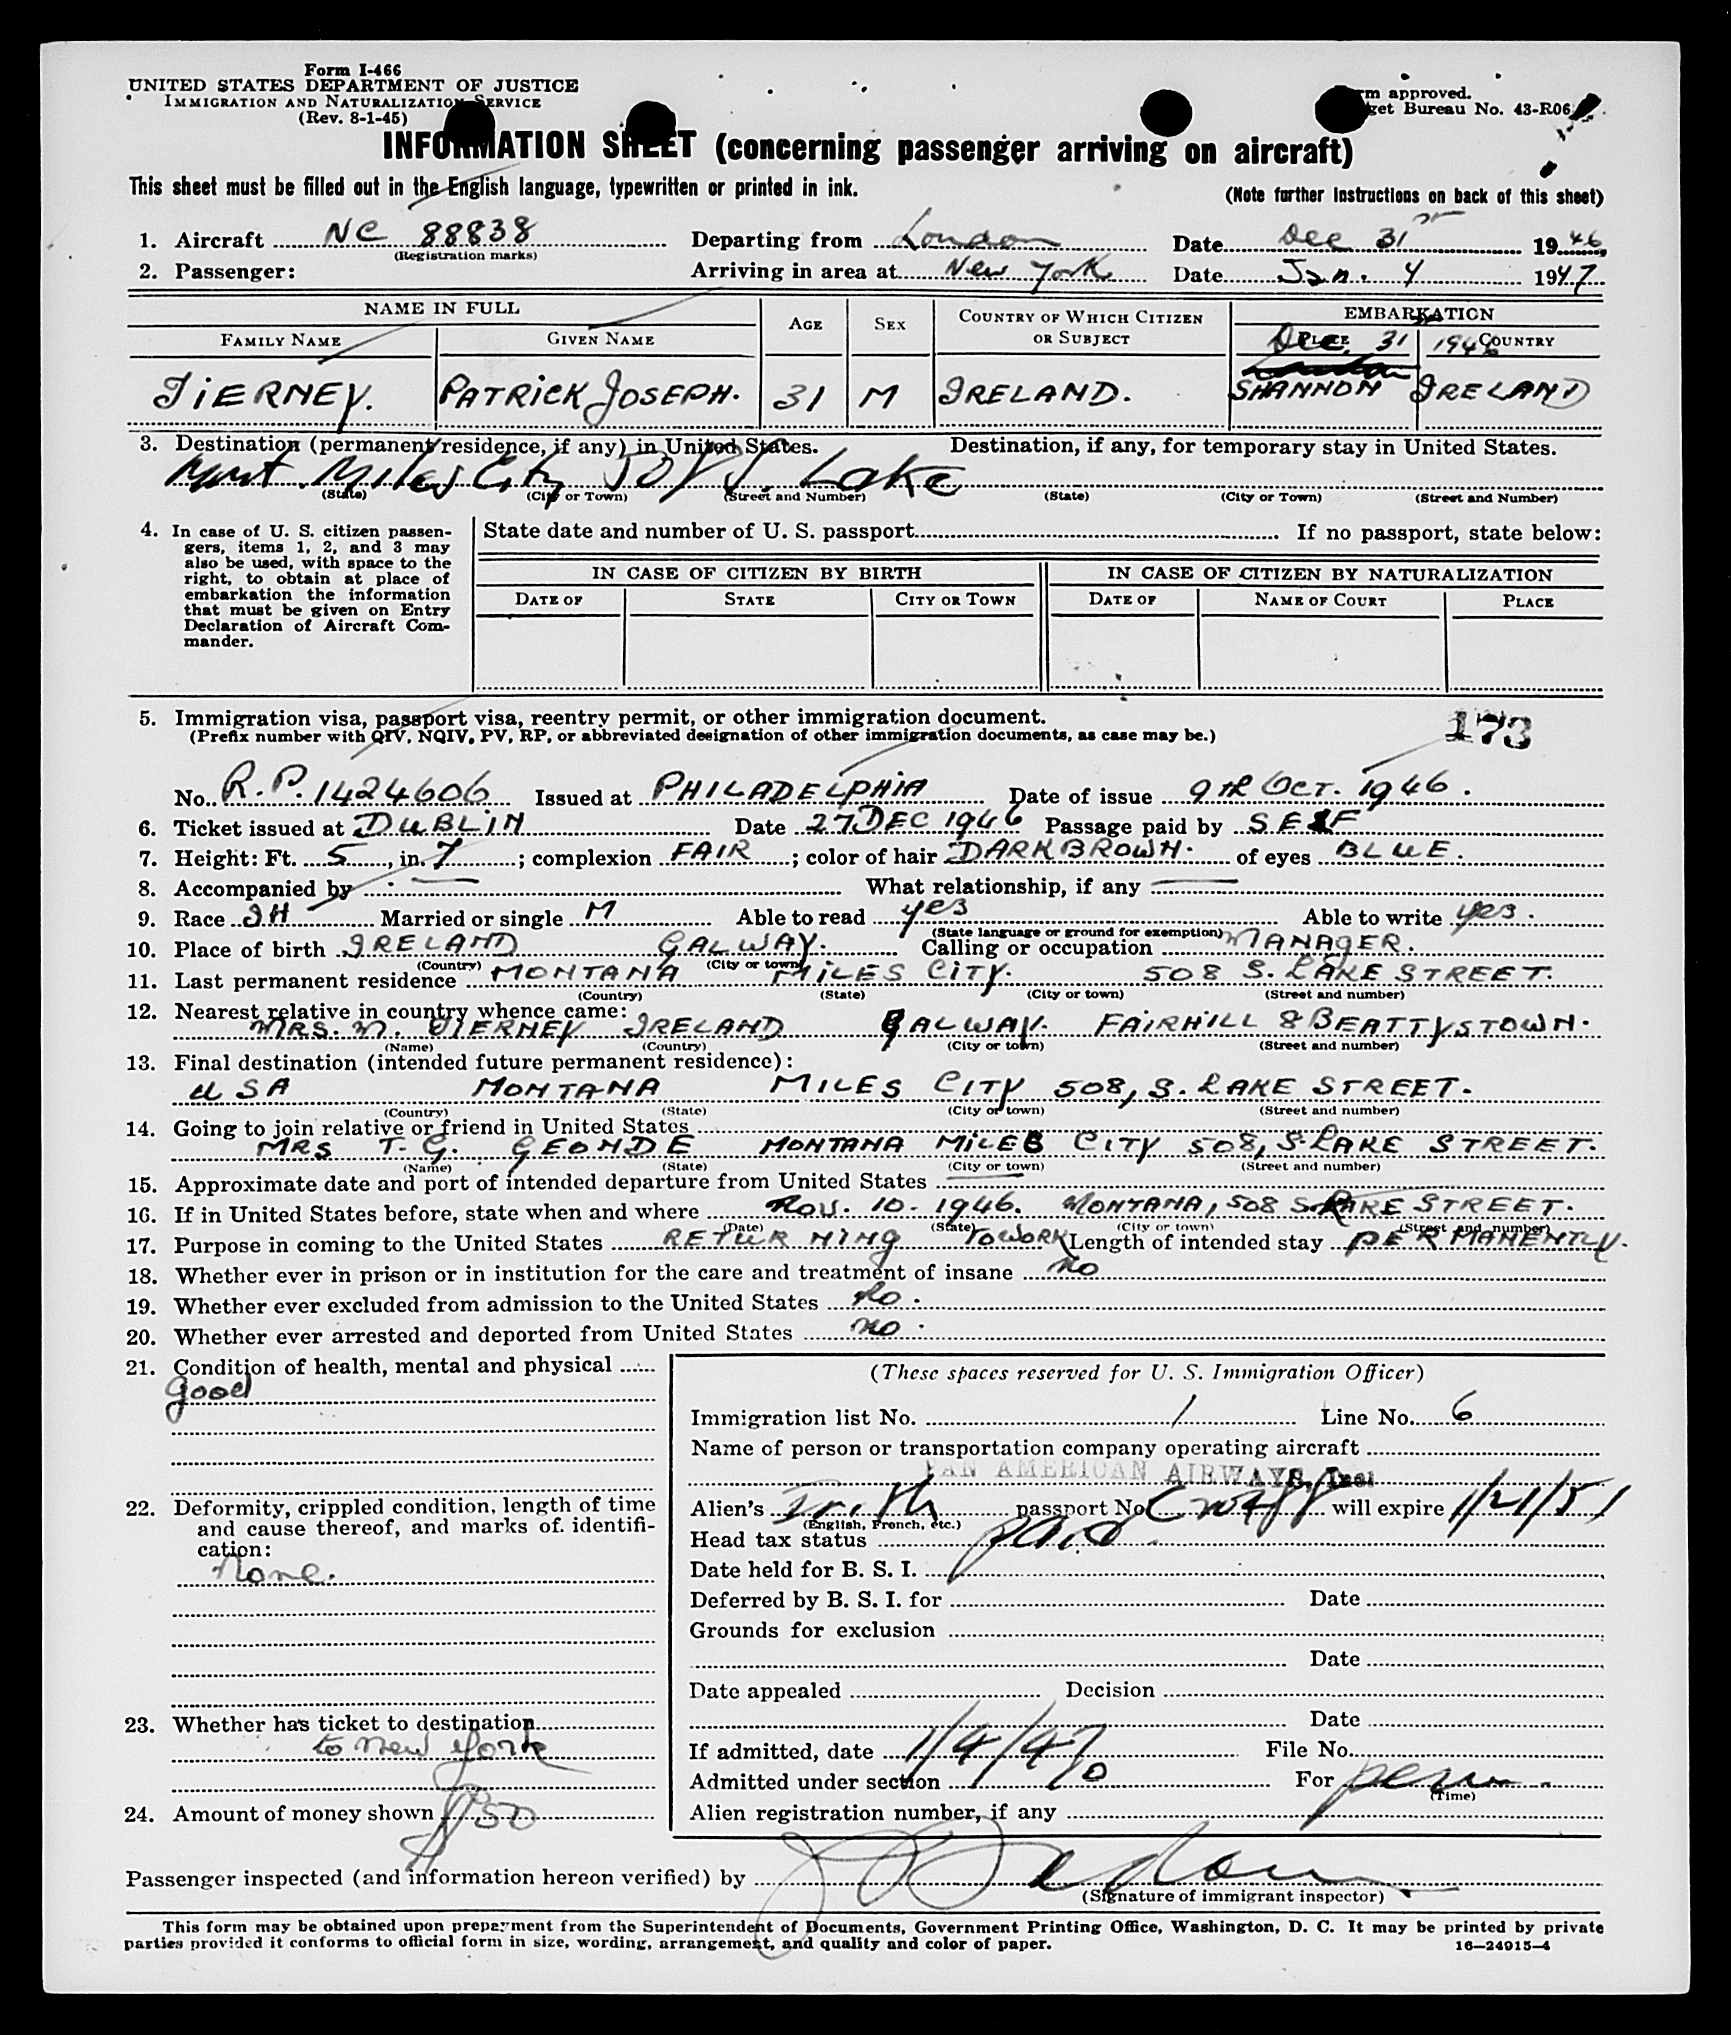 Form I-466
UNITED STATES DEPARTMENT OF JUSTICE
IMMIGRATION AND NATURALIZATION SERVICE
(Rev. 8-1-45)
approved.
Bureau No. 43-R06
INFORMATION SHEET (concerning passenger arriving on aircraft)
This sheet must be filled out in the English language, typewritten or printed in ink.
(Note further instructions on back of this sheet)
1. Aircraft NC 88838 Departing from London Date Dec 31st 1946
(Registration marks)
2. Passenger: Arriving in area at New York Date Jan. 4 1947
NAME IN FULL AGE SEX COUNTRY OF WHICH CITIZEN OR SUBJECT EMBARKATION
FAMILY NAME GIVEN NAME PLACE COUNTRY
Dec. 31 1946
TIERNEY. PATRICK JOSEPH. 31 M IRELAND. SHANNON IRELAND
3. Destination (permanent residence, if any) in United States. Destination, if any, for temporary stay in United States.
Mont. Miles City 508 S. Lake
(State) (City or Town) (Street and Number) (State) (City or Town) (Street and Number)
4. In case of U. S. citizen passengers, items 1, 2, and 3 may also be used, with space to the right, to obtain at place of embarkation the information that must be given on Entry Declaration of Aircraft Commander.
State date and number of U. S. passport If no passport, state below:
IN CASE OF CITIZEN BY BIRTH IN CASE OF CITIZEN BY NATURALIZATION
DATE OF STATE CITY OR TOWN DATE OF NAME OF COURT PLACE
5. Immigration visa, passport visa, reentry permit, or other immigration document.
(Prefix number with QIV, NQIV, PV, RP, or abbreviated designation of other immigration documents, as case may be.)
173
No. R.P. 1424606 Issued at PHILADELPHIA Date of issue 9th OCT. 1946.
6. Ticket issued at DUBLIN Date 27 DEC 1946 Passage paid by SELF
7. Height: Ft. 5, in. 7; complexion FAIR; color of hair DARK BROWN. of eyes BLUE.
8. Accompanied by — What relationship, if any —
9. Race IH Married or single M Able to read yes Able to write yes.
(State language or ground for exemption)
10. Place of birth IRELAND GALWAY. Calling or occupation MANAGER.
(Country) (City or town)
11. Last permanent residence MONTANA MILES CITY. 508 S. LAKE STREET.
(Country) (State) (City or town) (Street and number)
12. Nearest relative in country whence came:
MRS. M. TIERNEY IRELAND GALWAY. FAIRHILL 8 BEATTYSTOWN.
(Name) (Country) (City or town) (Street and number)
13. Final destination (intended future permanent residence):
USA MONTANA MILES CITY 508, S. LAKE STREET.
(Country) (State) (City or town) (Street and number)
14. Going to join relative or friend in United States
MRS T. G. GEONDE MONTANA MILES CITY 508, S. LAKE STREET.
(Name) (State) (City or town) (Street and number)
15. Approximate date and port of intended departure from United States —
16. If in United States before, state when and where Nov. 10. 1946. MONTANA, 508 S. LAKE STREET.
(Date) (State) (City or town) (Street and number)
17. Purpose in coming to the United States RETURNING TO WORK Length of intended stay PERMANENTLY.
18. Whether ever in prison or in institution for the care and treatment of insane No
19. Whether ever excluded from admission to the United States No.
20. Whether ever arrested and deported from United States No.
21. Condition of health, mental and physical
Good
22. Deformity, crippled condition, length of time and cause thereof, and marks of identification:
None.
23. Whether has ticket to destination
to New York
24. Amount of money shown $50
(These spaces reserved for U. S. Immigration Officer)
Immigration list No. 1 Line No. 6
Name of person or transportation company operating aircraft
PAN AMERICAN AIRWAYS, Inc.
Alien's Irish passport No. will expire 1/21/51
(English, French, etc.)
Head tax status paid
Date held for B. S. I.
Deferred by B. S. I. for Date
Grounds for exclusion
Date
Date appealed Decision
Date
If admitted, date 1/4/47 File No.
Admitted under section For perm.
(Time)
Alien registration number, if any
Passenger inspected (and information hereon verified) by
(Signature of immigrant inspector)
This form may be obtained upon prepayment from the Superintendent of Documents, Government Printing Office, Washington, D. C. It may be printed by private
parties provided it conforms to official form in size, wording, arrangement, and quality and color of paper.
16—24015-4